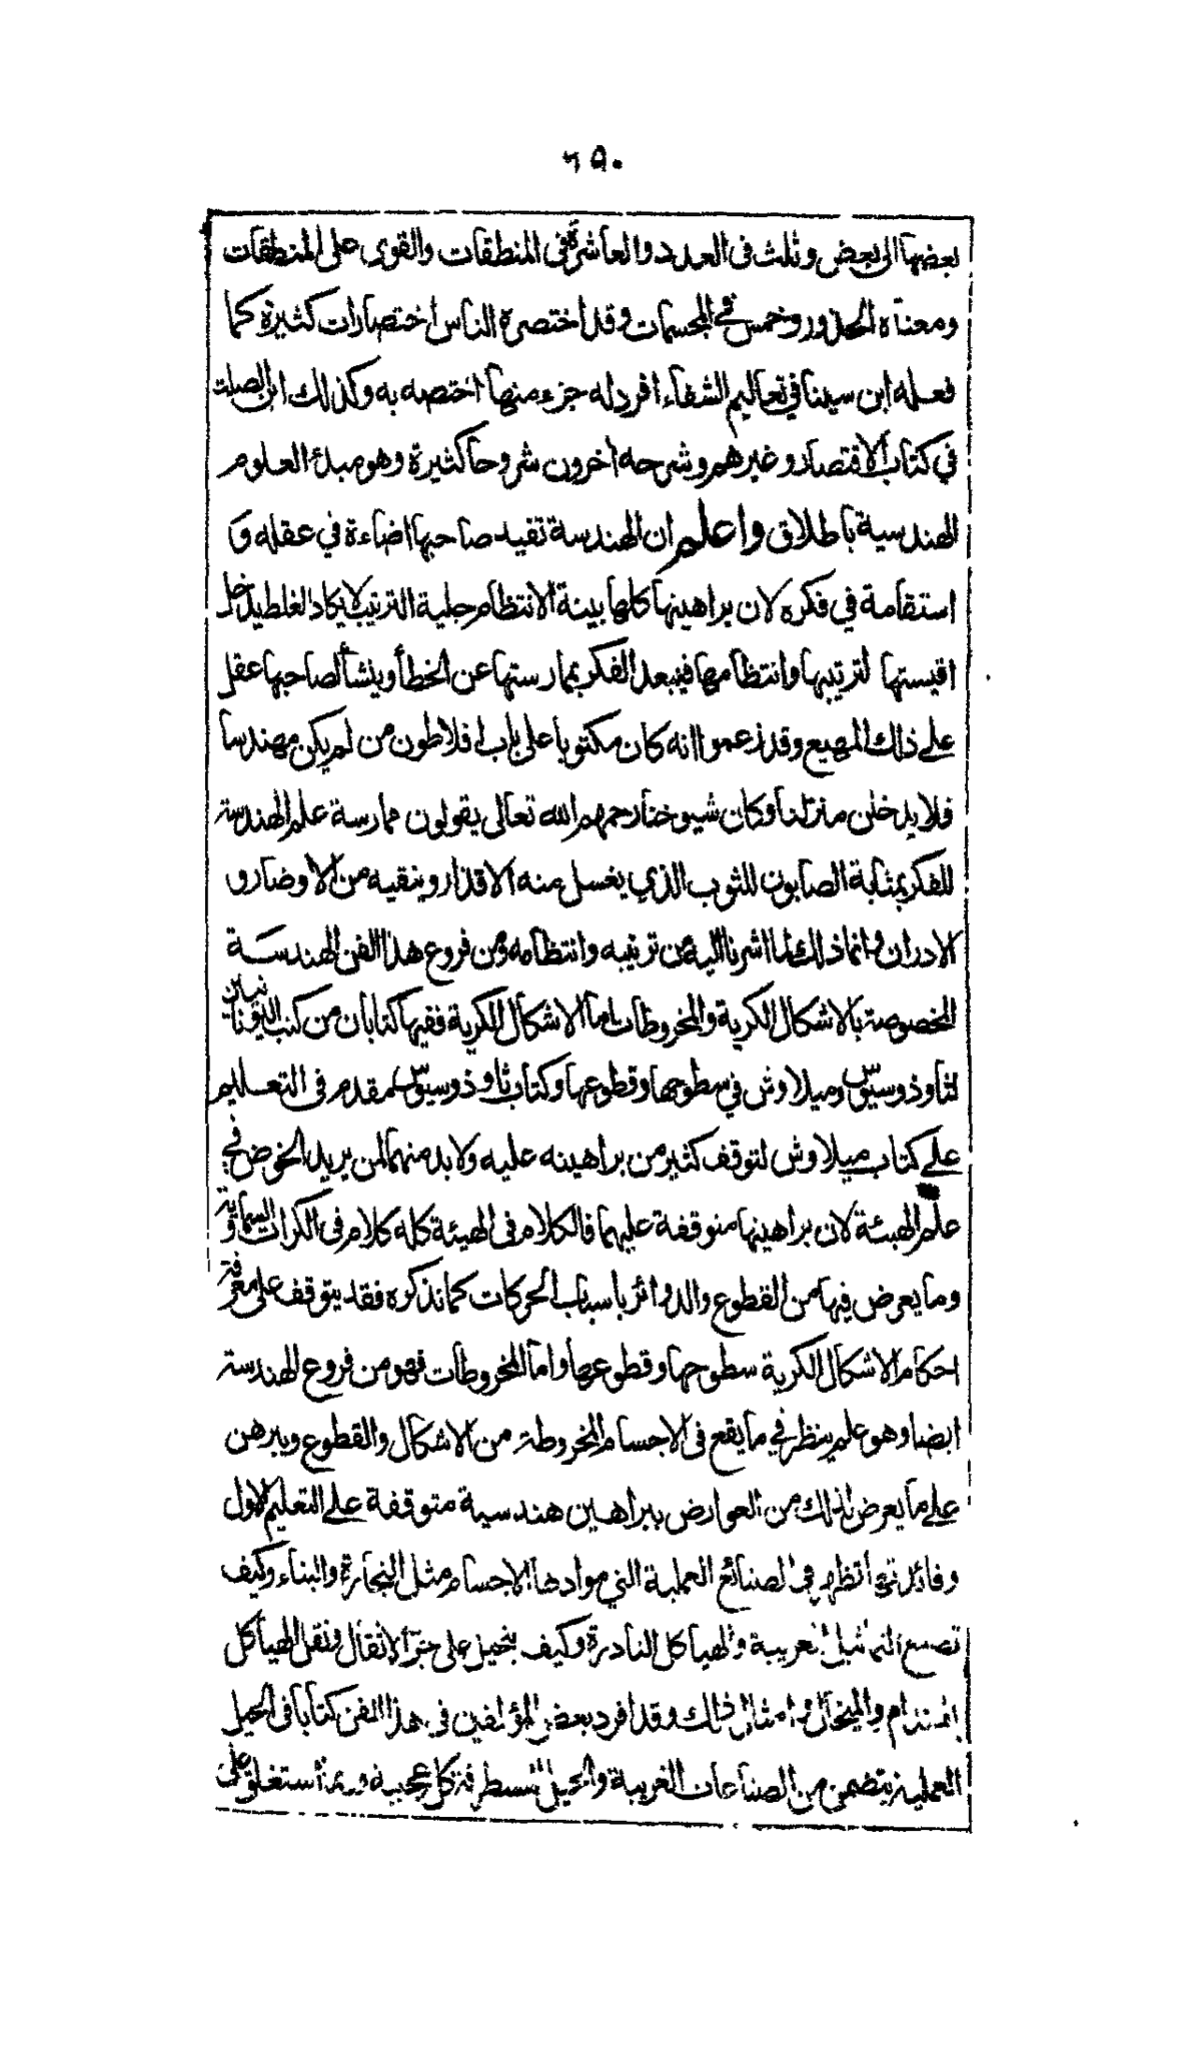 ٦٥٠
بعضها الى بعض وثلث فى العدد والعاشرة فى المنطقات والقوى على المنطقات
ومعناه الجذور وخمس فى المجسمات وقد اختصره الناس اختصارات كثيرة كما
فعله ابن سينا في تعاليم الشفاء افرد له جزء منها اختصه به وكذلك ابن الصلت
في كتاب الاقتصار وغيرهم وشرحه اخرون شروحا كثيرة وهو مبدء العلوم
الهندسية باطلاق واعلم ان الهندسة تفيد صاحبها اضاءة في عقله و
استقامة في فكره لان براهينها كلها بينة الانتظام جلية الترتيب لا يكاد الغلط يدخل
اقيستها لترتيبها وانتظامها فيبعد الفكر بممارستها عن الخطأ وينشأ لصاحبها عقل
على ذلك المهيع وقد زعموا انه كان مكتوبا على باب افلاطون من لم يكن مهندسا
فلا يدخلن منزلنا وكان شيوخنا رحمهم الله تعالى يقولون ممارسة علم الهندسة
للفكر بمثابة الصابون للثوب الذي يغسل منه الاقذار وينقيه من الاوضار و
الادران وانما ذلك لما اشرنا اليه من ترتيبه وانتظامه ومن فروع هذا الفن الهندسة
المخصوصة بالاشكال الكرية والمخروطات اما الاشكال الكرية ففيها كتابان من كتب اليونانيين
لثاوذوسيوس وميلاوش في سطوحها وقطوعها وكتاب ثاوذوسيوس مقدم فى التعليم
على كتاب ميلاوش لتوقف كثير من براهينه عليه ولا بد منهما لمن يريد الخوض فى
علم الهيئة لان براهينها متوقفة عليهما فالكلام فى الهيئة كله كلام فى الكرات السماوية
وما يعرض فيها من القطوع والدوائر باسباب الحركات كما نذكره فقد يتوقف على معرفة
احكام الاشكال الكرية سطوحها وقطوعها واما المخروطات فهو من فروع الهندسة
ايضا وهو علم ينظر في ما يقع فى الاجسام المخروطة من الاشكال والقطوع ويبرهن
على ما يعرض لذلك من العوارض ببراهين هندسية متوقفة على التعليم الاول
وفائدتها تظهر فى الصنائع العملية التي موادها الاجسام مثل النجارة والبناء وكيف
تصنع التماثيل الغريبة والهياكل النادرة وكيف يتحيل على جر الاثقال ونقل الهياكل
بالهندام والميخال وامثال ذلك وقد افرد بعض المؤلفين فى هذا الفن كتابا فى الحيل
العملية يتضمن من الصناعات الغريبة والحيل المستطرفة كل عجيبة وربما استغلق على